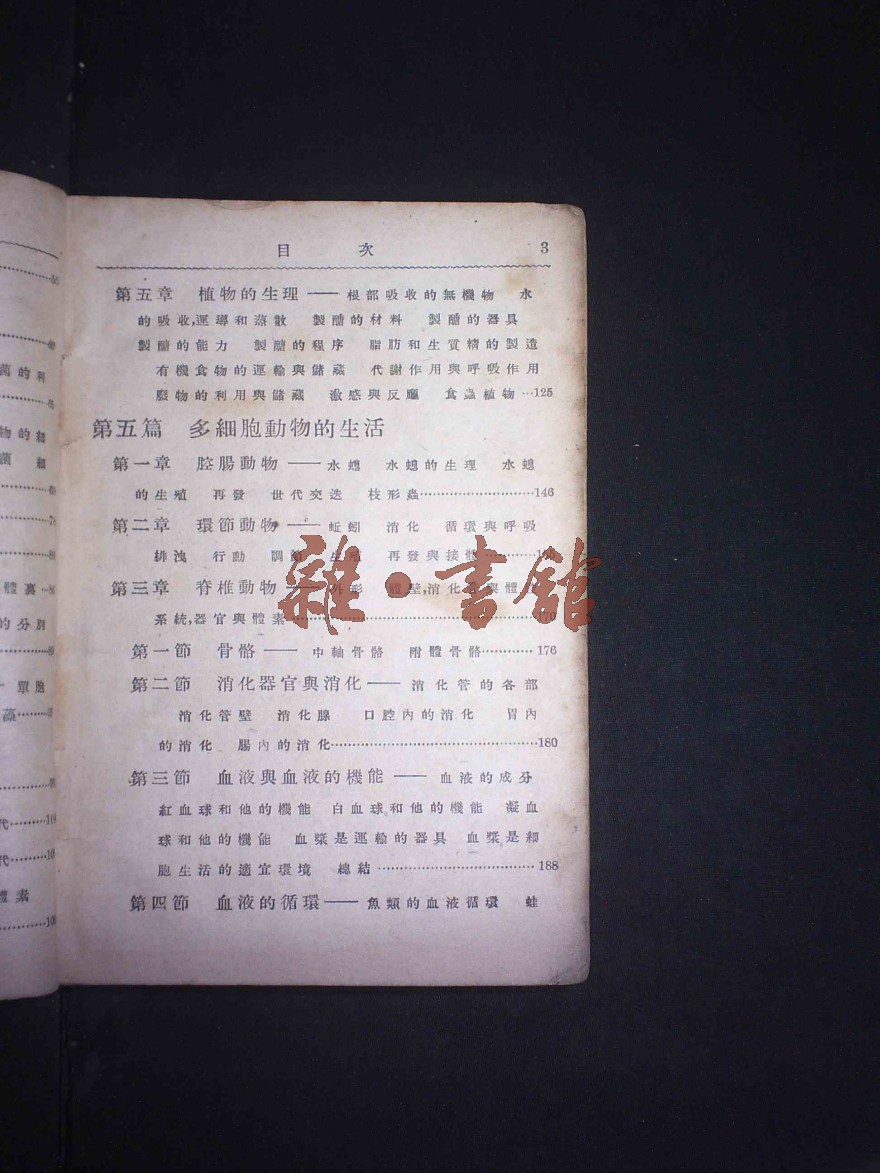 目 次 3
第五章 植物的生理——根部吸收的無機物 水
的吸收,運導和蒸散 製醣的材料 製醣的器具
製醣的能力 製醣的程序 脂肪和生質精的製造
有機食物的運輸與儲藏 代謝作用與呼吸作用
廢物的利用與儲藏 激感與反應 食蟲植物…125
第五篇 多細胞動物的生活
第一章 腔腸動物——水螅 水螅的生理 水螅
的生殖 再發 世代交迭 枝形蟲……146
第二章 環節動物——蚯蚓 消化 循環與呼吸
排洩 行動 調節 生殖 再發與接體……
第三章 脊椎動物——外形 體壁,消化管與體
系統,器官與體素……
第一節 骨骼——中軸骨骼 附體骨骼……176
第二節 消化器官與消化——消化管的各部
消化管壁 消化腺 口腔內的消化 胃內
的消化 腸內的消化……180
第三節 血液與血液的機能——血液的成分
紅血球和他的機能 白血球和他的機能 凝血
球和他的機能 血漿是運輸的器具 血漿是細
胞生活的適宜環境 總結……188
第四節 血液的循環——魚類的血液循環 蛙
雜·書館
菌的
物的
菌 細
體
的分別
單胞
藻……
代……
代……
體素